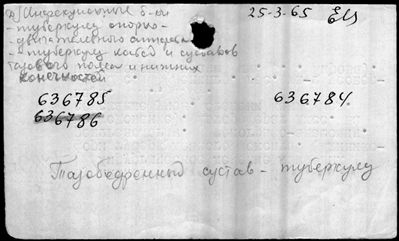 Инфекционные б-ни 25-3-65
- туберкулез опорно-
двигательного аппарата
- туберкулез костей и суставов
тазового пояса и нижних
конечностей
636785 636784.
636786
Тазобедренный сустав - туберкулез